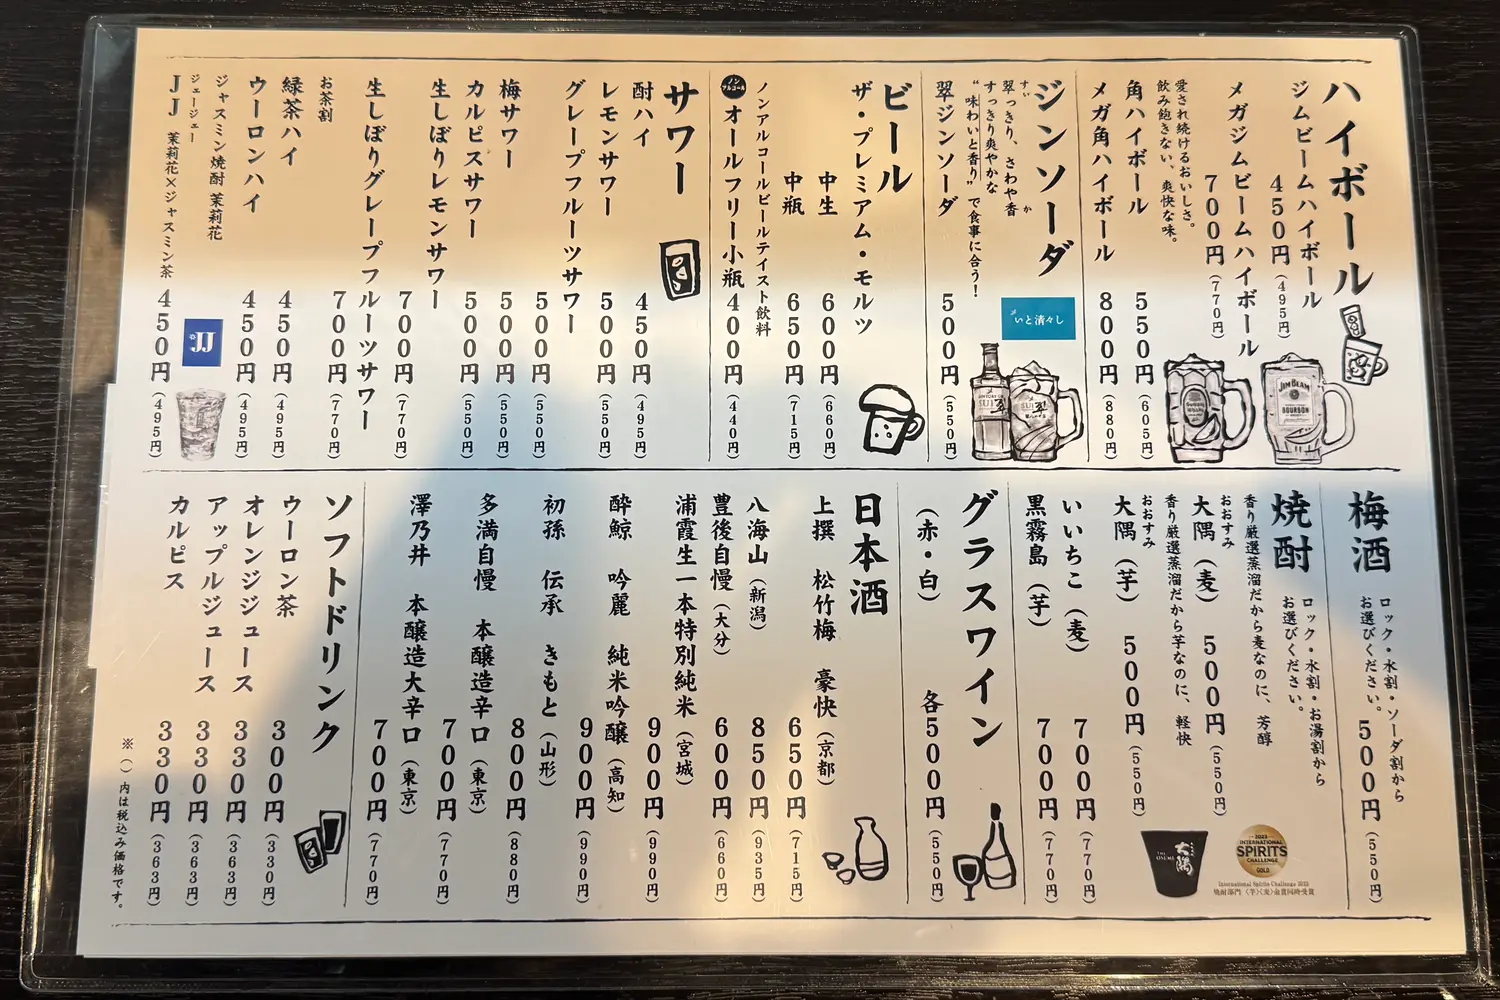 ハイボール
ジムビームハイボール
450円(495円)
メガジムビームハイボール
700円(770円)
愛され続けるおいしさ。
飲み飽きない、爽快な味。
角ハイボール 550円(605円)
メガ角ハイボール 800円(880円)
JIM BEAM
BOURBON
ジンソーダ
翠っきり、さわや香
すい か
すっきり爽やかな
“味わいと香り”で食事に合う!
翠ジンソーダ 500円(550円)
いと清々し
SUI
翠
ビール
ザ・プレミアム・モルツ
中生 600円(660円)
中瓶 650円(715円)
ノンアルコールビールテイスト飲料
ノンアルコール オールフリー小瓶 400円(440円)
サワー
酎ハイ 450円(495円)
レモンサワー 500円(550円)
グレープフルーツサワー 500円(550円)
梅サワー 500円(550円)
カルピスサワー 500円(550円)
生しぼりレモンサワー 700円(770円)
生しぼりグレープフルーツサワー 700円(770円)
お茶割
緑茶ハイ 450円(495円)
ウーロンハイ 450円(495円)
ジャスミン焼酎 茉莉花
ジェージェー
JJ 茉莉花×ジャスミン茶 450円(495円)
JJ
梅酒
ロック・水割・ソーダ割から
お選びください。 500円(550円)
焼酎
ロック・水割・お湯割から
お選びください。
香り厳選蒸溜だから麦なのに、芳醇
おおすみ
大隅(麦) 500円(550円)
香り厳選蒸溜だから芋なのに、軽快
おおすみ
大隅(芋) 500円(550円)
THE OSUMI
大隅
2023
INTERNATIONAL
SPIRITS
CHALLENGE
GOLD
International Spirits Challenge 2023
焼酎部門 〈芋〉〈麦〉金賞同時受賞
いいちこ(麦) 700円(770円)
黒霧島(芋) 700円(770円)
グラスワイン
(赤・白) 各500円(550円)
日本酒
上撰 松竹梅 豪快(京都) 650円(715円)
八海山(新潟) 850円(935円)
豊後自慢(大分) 600円(660円)
浦霞生一本特別純米(宮城) 900円(990円)
酔鯨 吟麗 純米吟醸(高知) 900円(990円)
初孫 伝承 きもと(山形) 800円(880円)
多満自慢 本醸造辛口(東京) 700円(770円)
澤乃井 本醸造大辛口(東京) 700円(770円)
ソフトドリンク
ウーロン茶 300円(330円)
オレンジジュース 330円(363円)
アップルジュース 330円(363円)
カルピス 330円(363円)
※()内は税込み価格です。